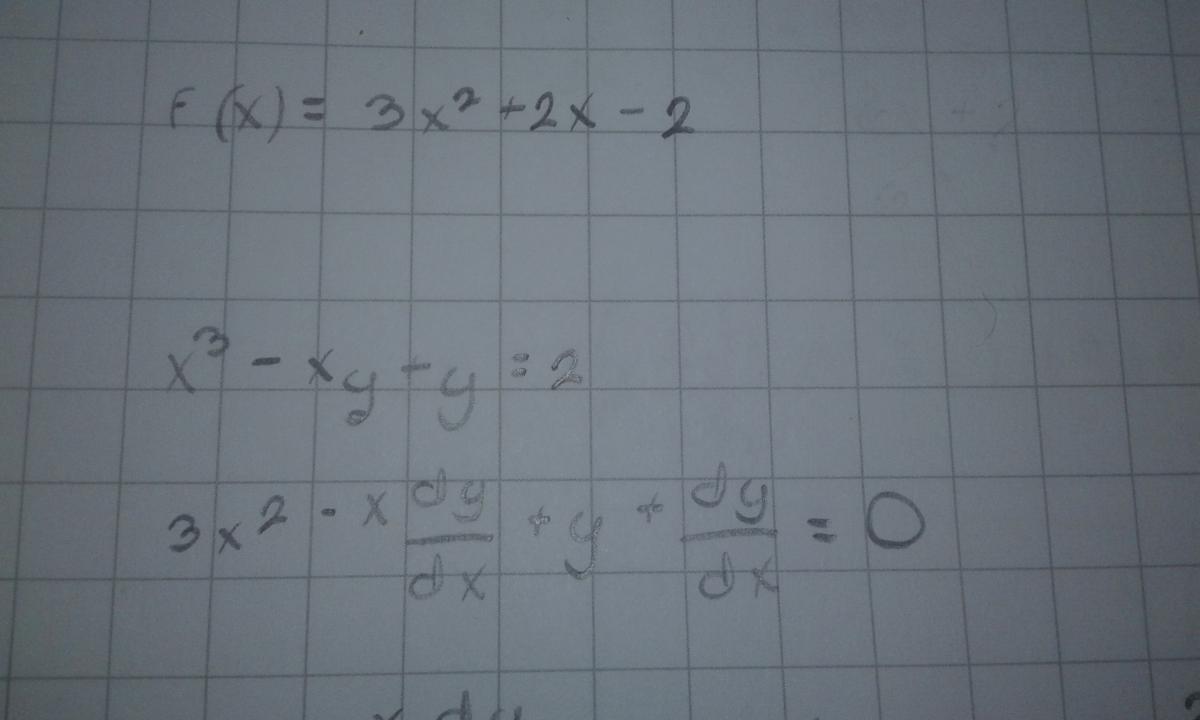 F(x) = 3x² + 2x - 2
x³ - xy + y = 2
3x² - x dy/dx + y + dy/dx = 0